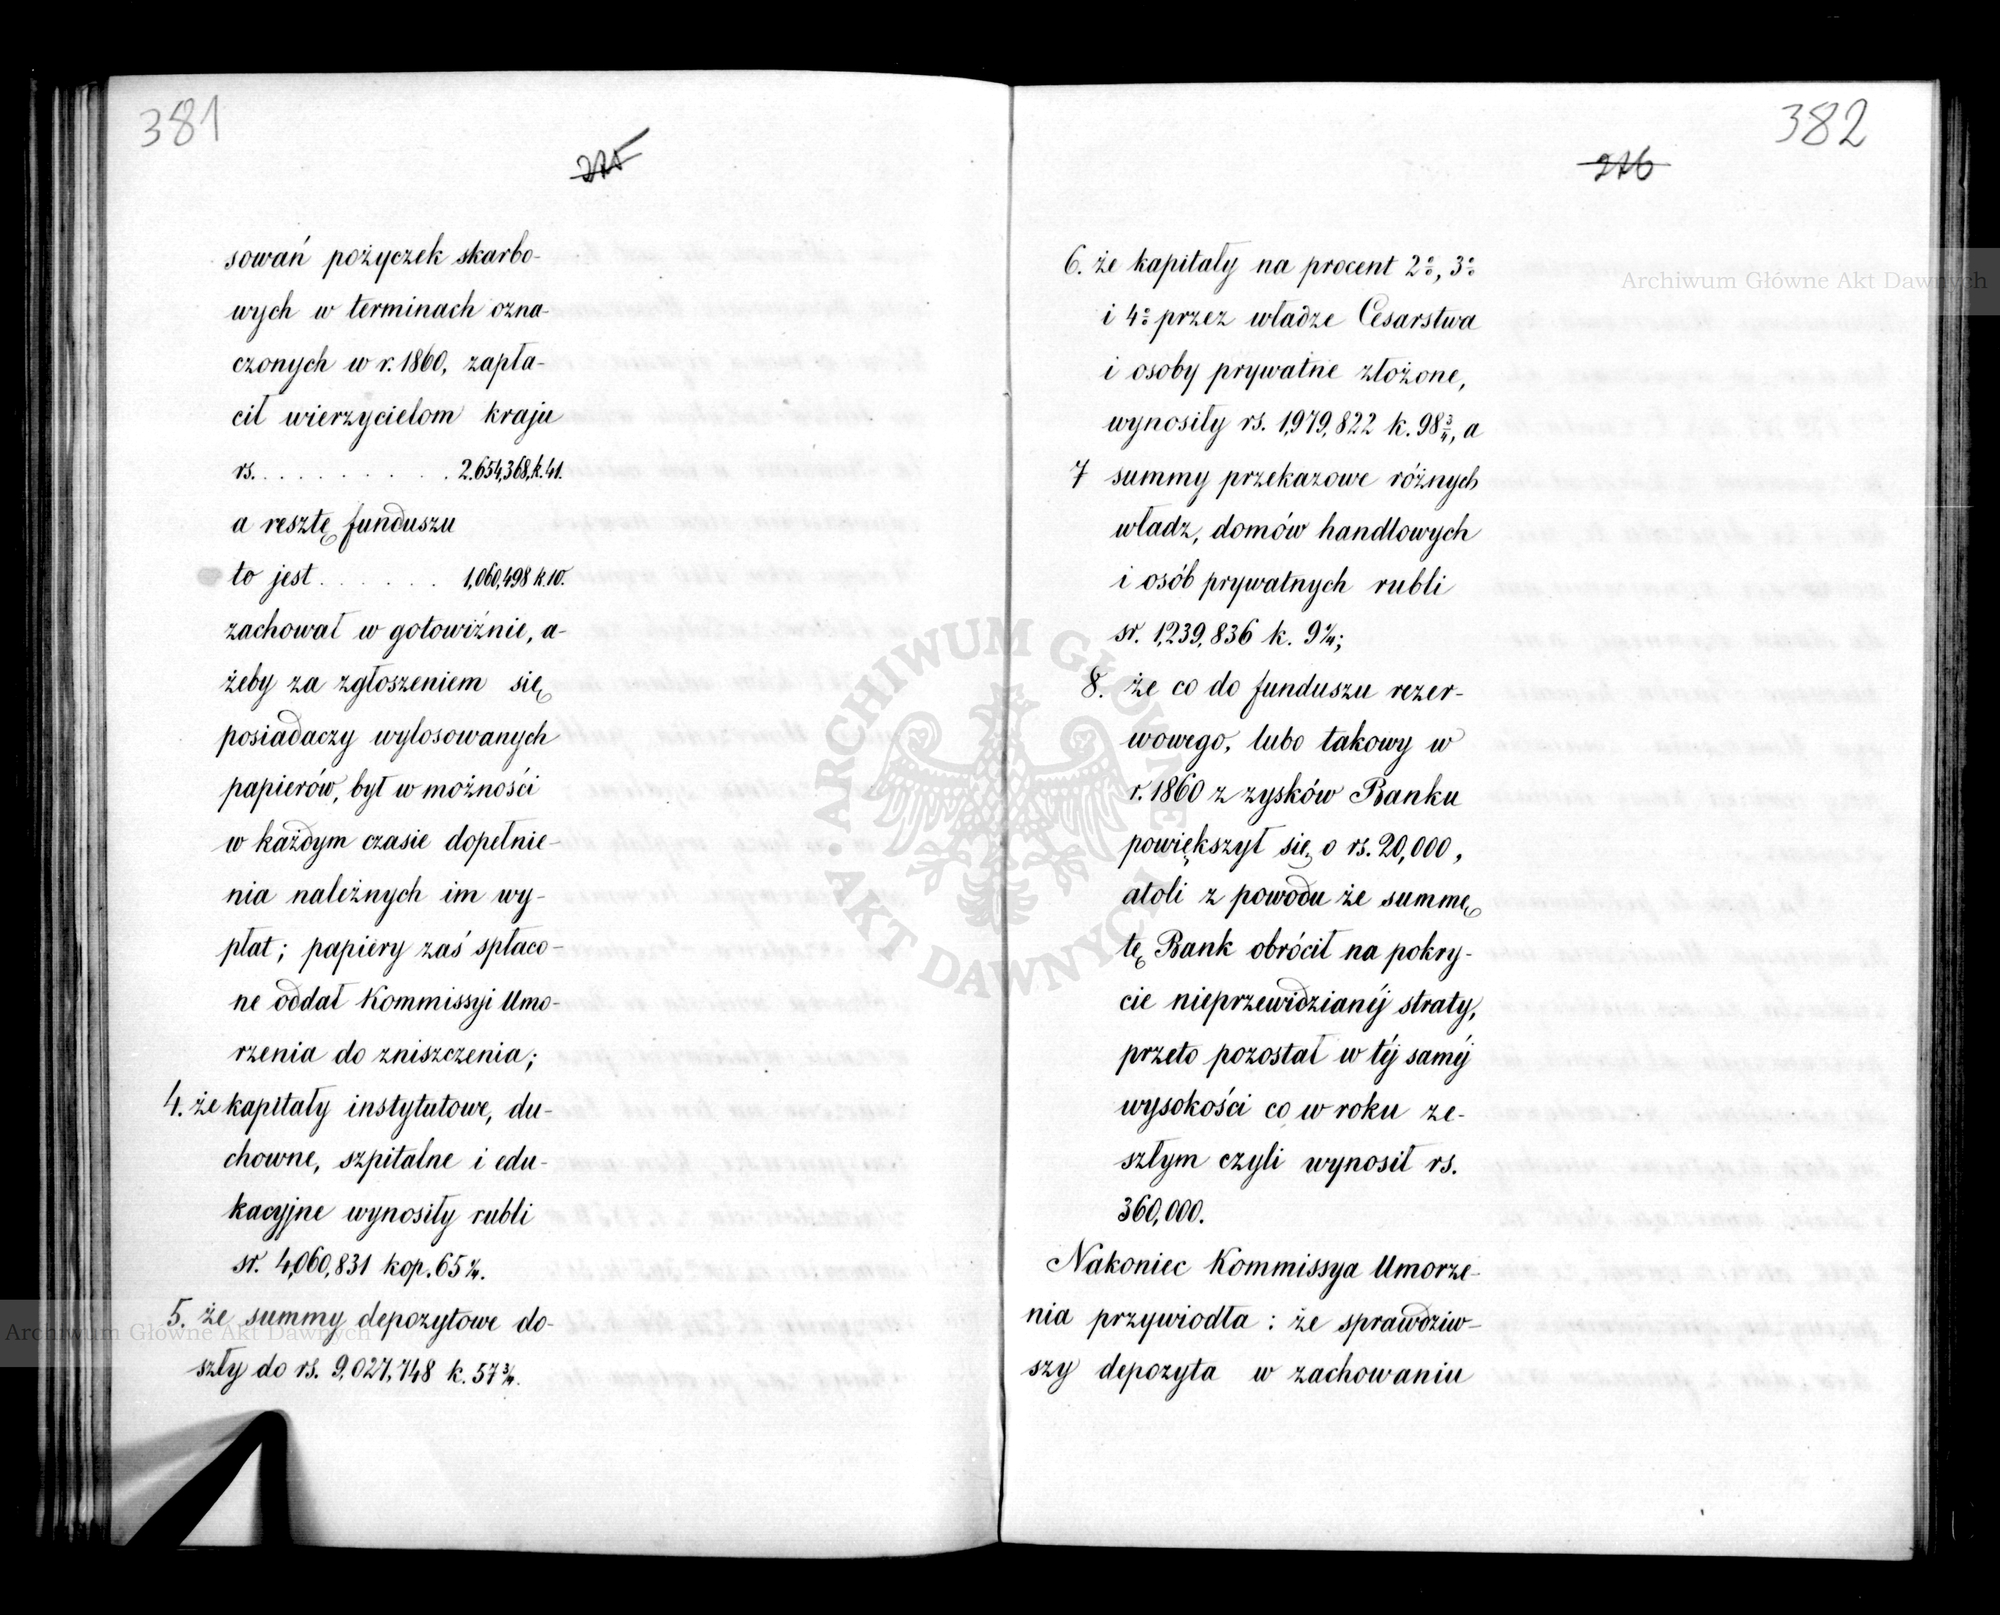 381
275
sowań pożyczek skarbo-
wych w terminach ozna-
czonych w r. 1860, zapła-
cił wierzycielom kraju
rs. . . . . . . . . . 2.654,368, k. 41.
a resztę funduszu
to jest . . . . . . 1,060,498 k. 10.
zachował w gotowiźnie, a-
żeby za zgłoszeniem się
posiadaczy wylosowanych
papierów, był w możności
w każdym czasie dopełnie-
nia należnych im wy-
płat; papiery zaś spłaco-
ne oddał Kommissyi Umo-
rzenia do zniszczenia;
4. że kapitały instytutowe, du-
chowne, szpitalne i edu-
kacyjne wynosiły rubli
sr. 4,060,831 kop. 65
5. że summy depozytowe do-
szły do rs. 9,027,748 k. 57 3/4.
382
276
6. że kapitały na procent 2%, 3%
i 4% przez władze Cesarstwa
i osoby prywatne złożone,
wynosiły rs. 1,979,822 k. 98 3/4, a
7 summy przekazowe różnych
władz, domów handlowych
i osób prywatnych rubli
sr. 1,239,836 k. 9
8. że co do funduszu rezer-
wowego, lubo takowy w
r. 1860 z zysków Banku
powiększył się o rs. 20,000,
atoli z powodu że summę
tę Bank obrócił na pokry-
cie nieprzewidzianéj straty,
przeto pozostał w téj saméj
wysokości co w roku ze-
szłym czyli wynosił rs.
360,000.
Nakoniec Kommissya Umorze-
nia przywiodła : że sprawdziw-
szy depozyta w zachowaniu
Archiwum Główne Akt Dawnych
Archiwum Główne Akt Dawnych
ARCHIWUM GŁÓWNE AKT DAWNYCH